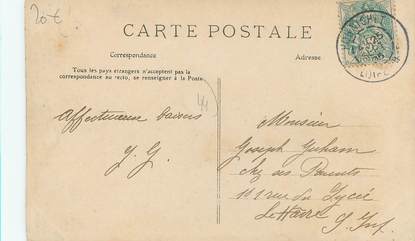 20€
CARTE POSTALE
Correspondance
Adresse
Tous les pays étrangers n'acceptent pas la
correspondance au recto, se renseigner à la Poste
44
Affectueux baisers
J. G.
Monsieur
Joseph
chez ses Parents
rue du Lycée
Le Havre S. Inf.
LOIRE